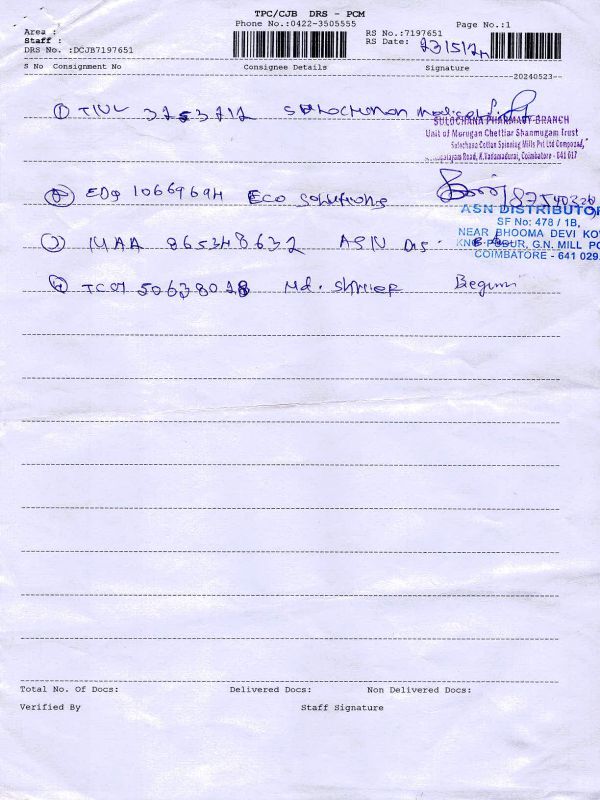 TPC/CJB DRS - PCM
Phone No.:0422-3505555
Page No.:1
Area :
Staff :
DRS No. :DCJB7197651
RS No.:7197651
RS Date: 23/5/24
S No Consignment No Consignee Details Signature
20240523
① 3253212
SULOCHANA PHARMACY BRANCH
Unit of Murugan Chettiar Shanmugam Trust
Sulochana Cotton Spinning Mills Pvt Ltd Compound,
Road, K.Vadamadurai, Coimbatore - 641 017
② 10669694 Eco Solutions
ASN DISTRIBUTOR
SF No: 478 / 1B,
NEAR BHOOMA DEVI KO
③ MAA 865348632 ASN Dis
PUDUR, G.N. MILL PO
COIMBATORE - 641 029.
④ 50638028 Md. Begum
Total No. Of Docs: Delivered Docs: Non Delivered Docs:
Verified By Staff Signature